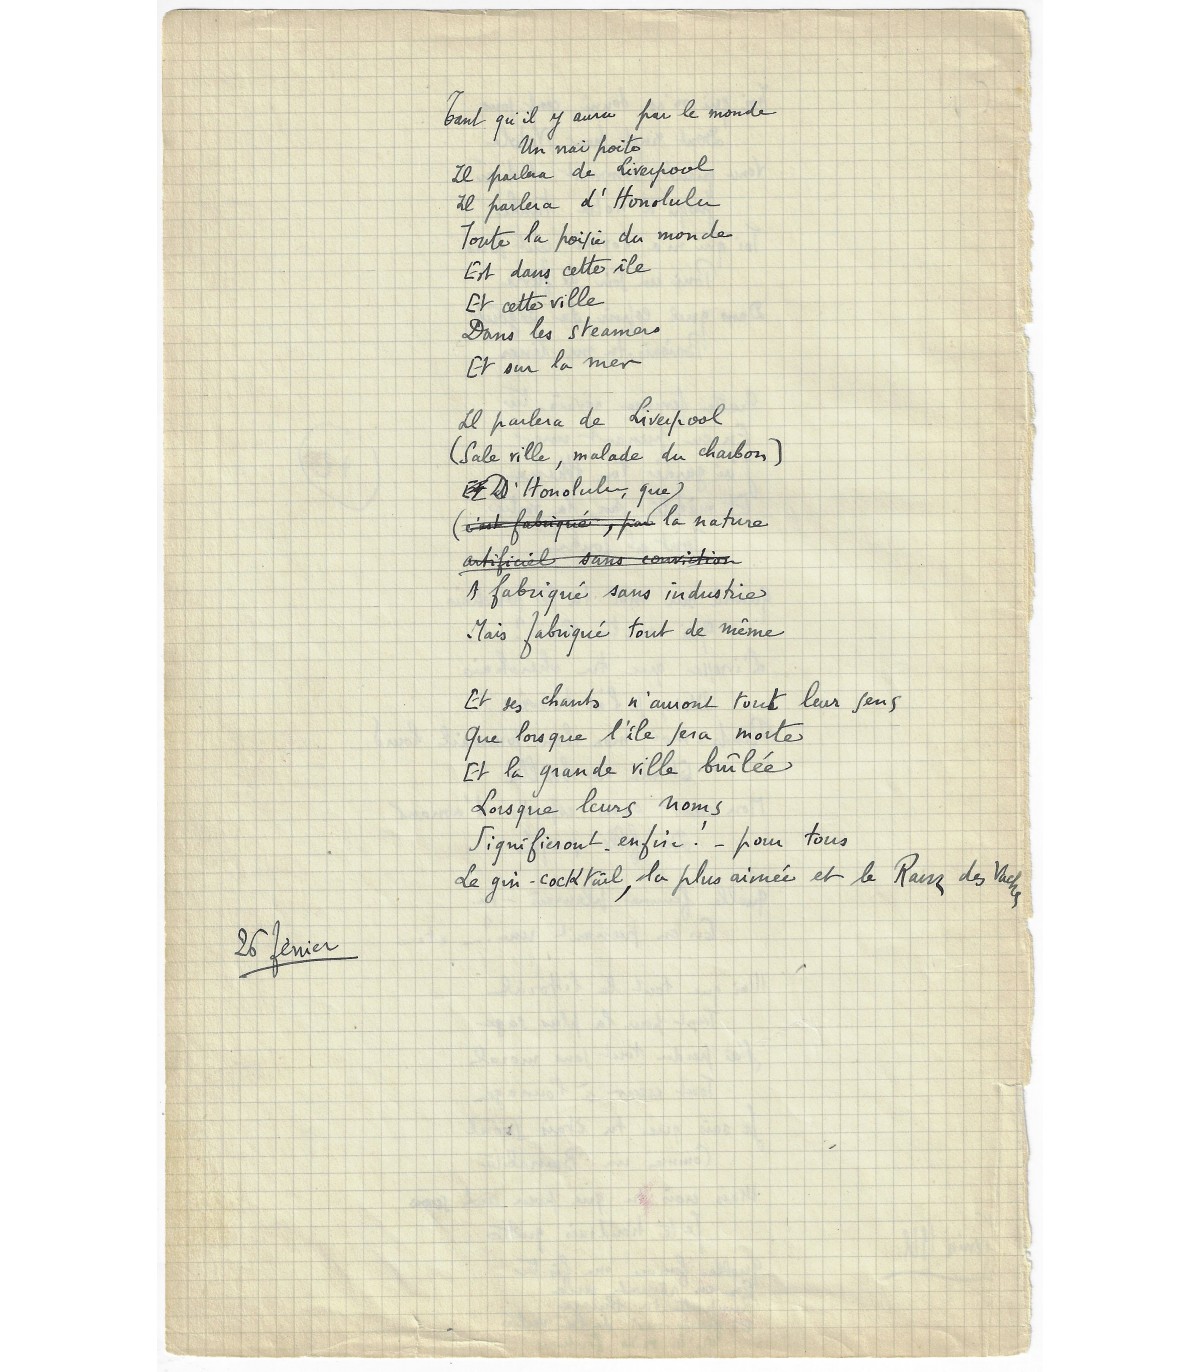 Tant qu'il y aura par le monde
Un vrai poète
Il parlera de Liverpool
Il parlera d'Honolulu
Toute la poésie du monde
Est dans cette île
Et cette ville
Dans les steamers
Et sur la mer
Il parlera de Liverpool
(Sale ville, malade du charbon)
Et D'Honolulu, que)
(c'est fabriqué, par la nature
artificiel sans conviction
A fabriqué sans industrie
Mais fabriqué tout de même
Et ses chants n'auront tout leur sens
Que lorsque l'île sera morte
Et la grande ville brûlée
Lorsque leurs noms
Signifieront - enfin! - pour tous
Le gin-cocktail, la plus aimée et le Ranz des Vaches
26 février